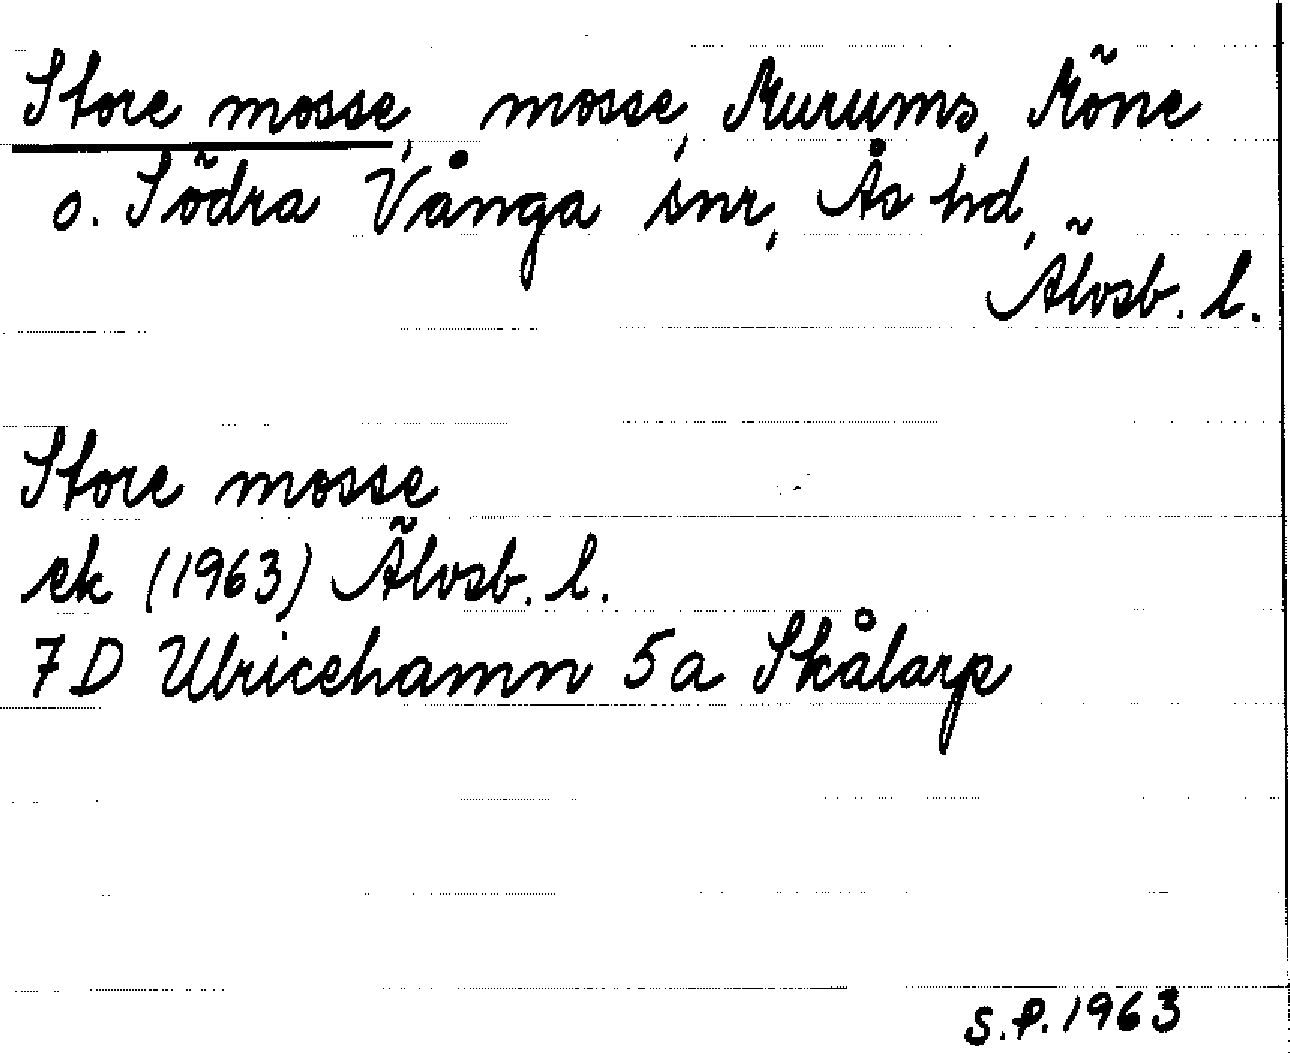 Store mosse, mosse, Murums, Möne
o. Södra Vånga snr, Ås hd,
Älvsb. l.
Store mosse
ek (1963) Älvsb. l.
7D Ulricehamn 5a Skålarp
S.P. 1963